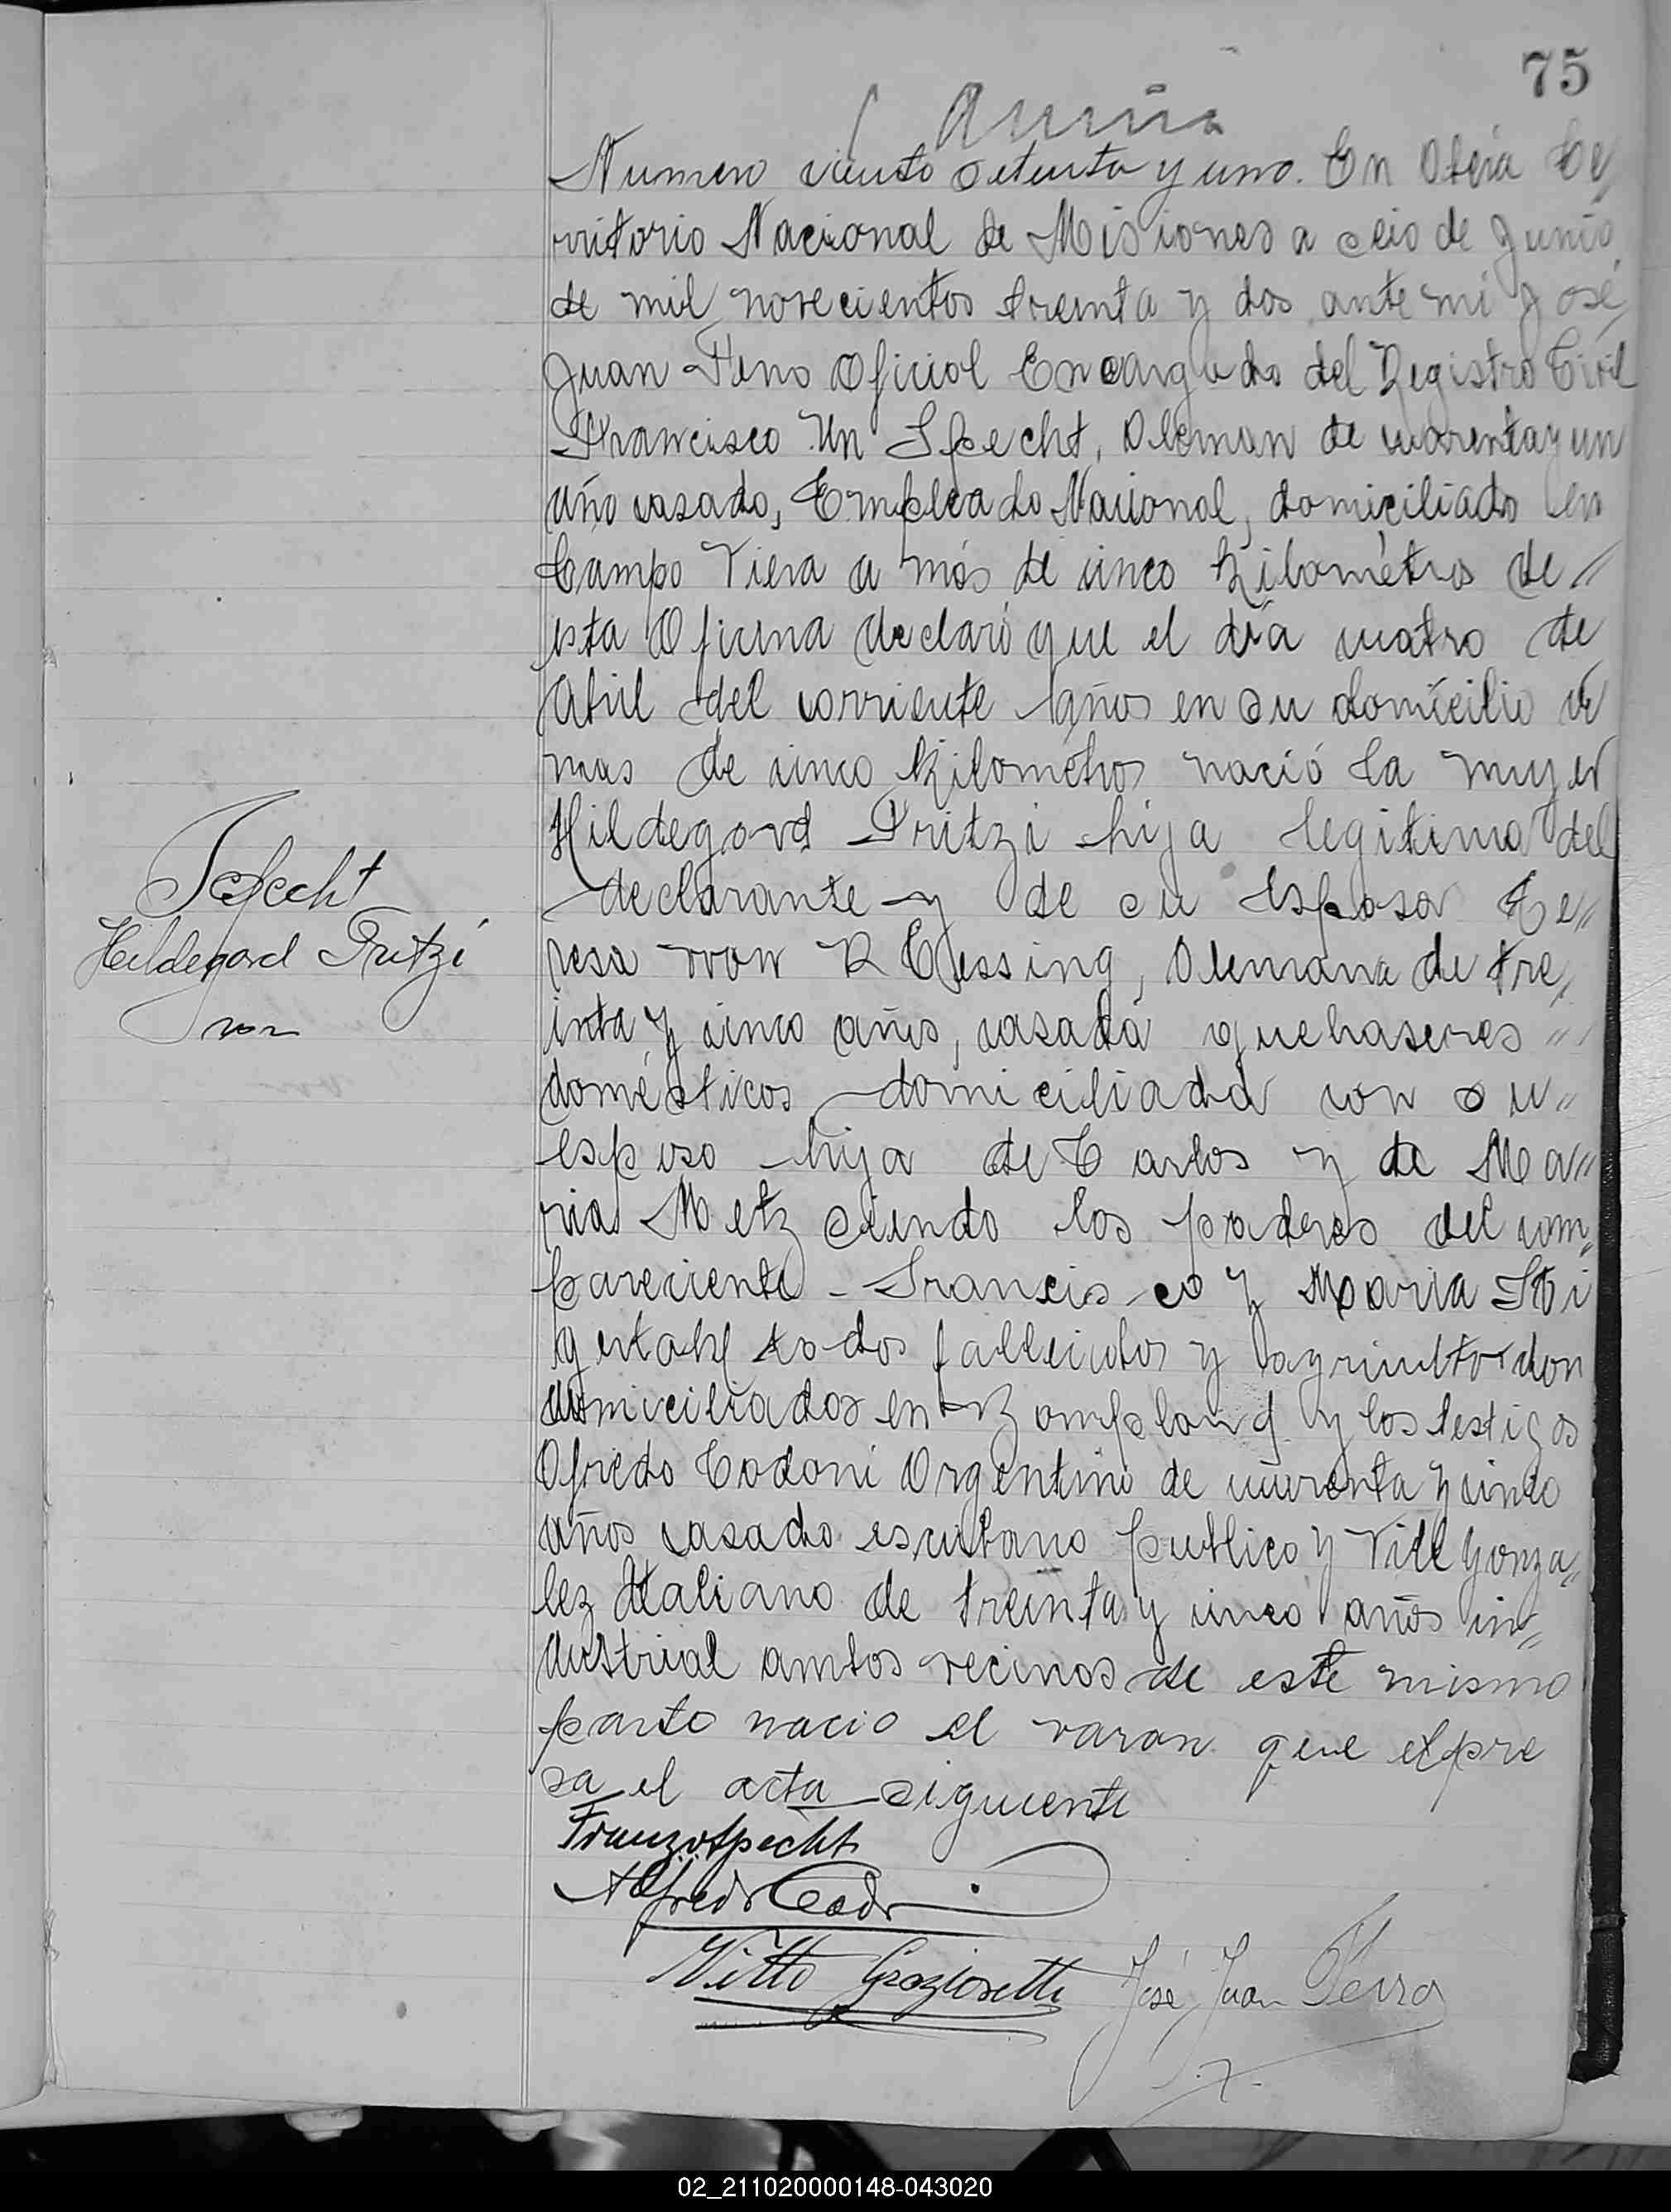 75
Numero ciento setenta y uno. En Oberá Te
rritorio Nacional de Misiones a seis de Junio
de mil novecientos treinta y dos ante mi José
Juan Ferro Oficial Encargado del Registro Civil
Francisco Specht, Aleman de cuarenta y un
año casado, Empleado Nacional, domiciliado en
Campo Viera a más de cinco Kilométros de //
esta Oficina declaró que el día cuatro de
Abril del corriente años en su domicilio a
mas de cinco Kilométros nació la mujer
Hildegard Fritzi hija legitima del
declarante y de su esposa Te //
resa von Cressing, Alemana de tre
inta y cinco años, casada quehaseres //
domésticos domiciliada con su //
esposo hija de Carlos y de Ma //
ria Metz siendo los padres del com
pareciente - Francisco y Maria
todos fallecidos y
domiciliados en y los testigos
Afredo Codoni Argentino de cuarenta y cinco
años casado escribano publico y Vitt Gonza
lez Italiano de treinta y cinco años in
dustrial ambos vecinos de este mismo
parto nacio el varon que expre
sa el acta siguiente
Specht
Hildegard Fritzi
von
Franz Specht
Alfredo Codoni
Vitto Graziosetti José Juan Ferro
02_211020000148-043020